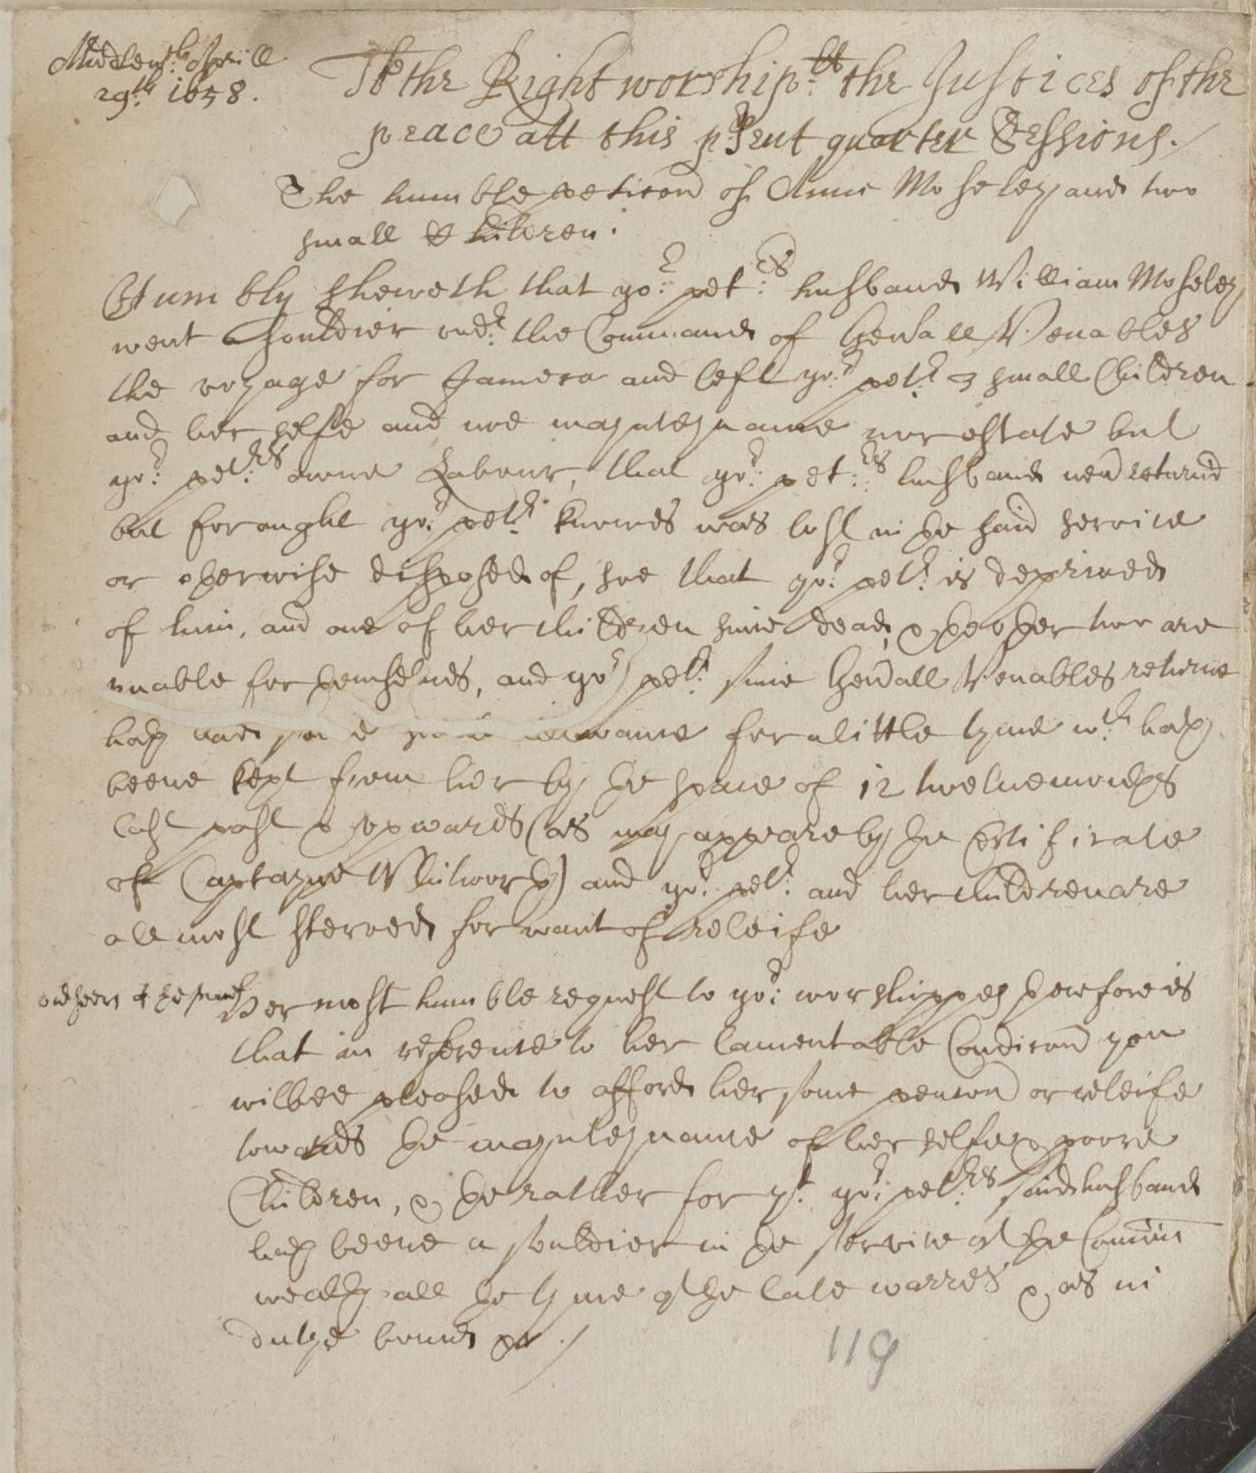 Midlewch Aprill
29th 1658.
To the Right worshipll the Justices of the
peace att this psent quarter Sessions./
The humble peticon of Anne Moseley and two
small Children.
Humbly sheweth that yor petrs husband William Moseley
went a souldier undr the Command of Genall Venables
the voyage for Jameca and left yor petr 3 small Children
and her selfe and noe maynteynance nor estate but
yor petrs owne Labour, that yor petrs husband nevr returnd
but for ought yor petr knowes was lost in the said service
or otherwise disposed of, soe that yor petr is deprived
of him, and one of her children since dead, & the other two are
unable for themselves, and yor petr since Genall Venables returne
hath had allowance for a little tyme wch hath
beene kept from her by the space of 12 twelve moneths
last past & upwards (as may appeare by the Certificate
of Captayne Whitworth) and yor petr and her children are
all most sterved for want of releife
Her most humble request to yor worshippes therefore is
that in reference to her lamentable Condicond you
wilbee pleased to afford her some pencon or releife
towards the maynteynance of her selfe & poore
Children, & the rather for yt yor petrs said husband
hath beene a souldier in the service of the Comon
wealth all the tyme of the late warres & as in
dutye bound &c ./
119